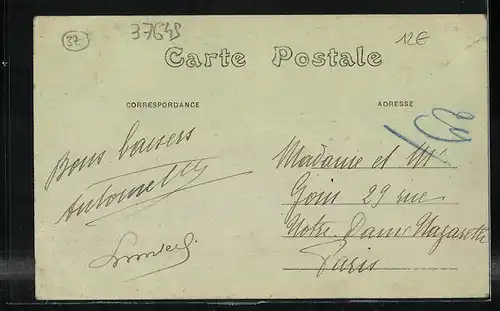 37
37645
12€
Carte Postale
CORRESPONDANCE
ADRESSE
Bons baisers
Madame et Mr
Goin 29 rue
Notre Dame Nazareth
Paris